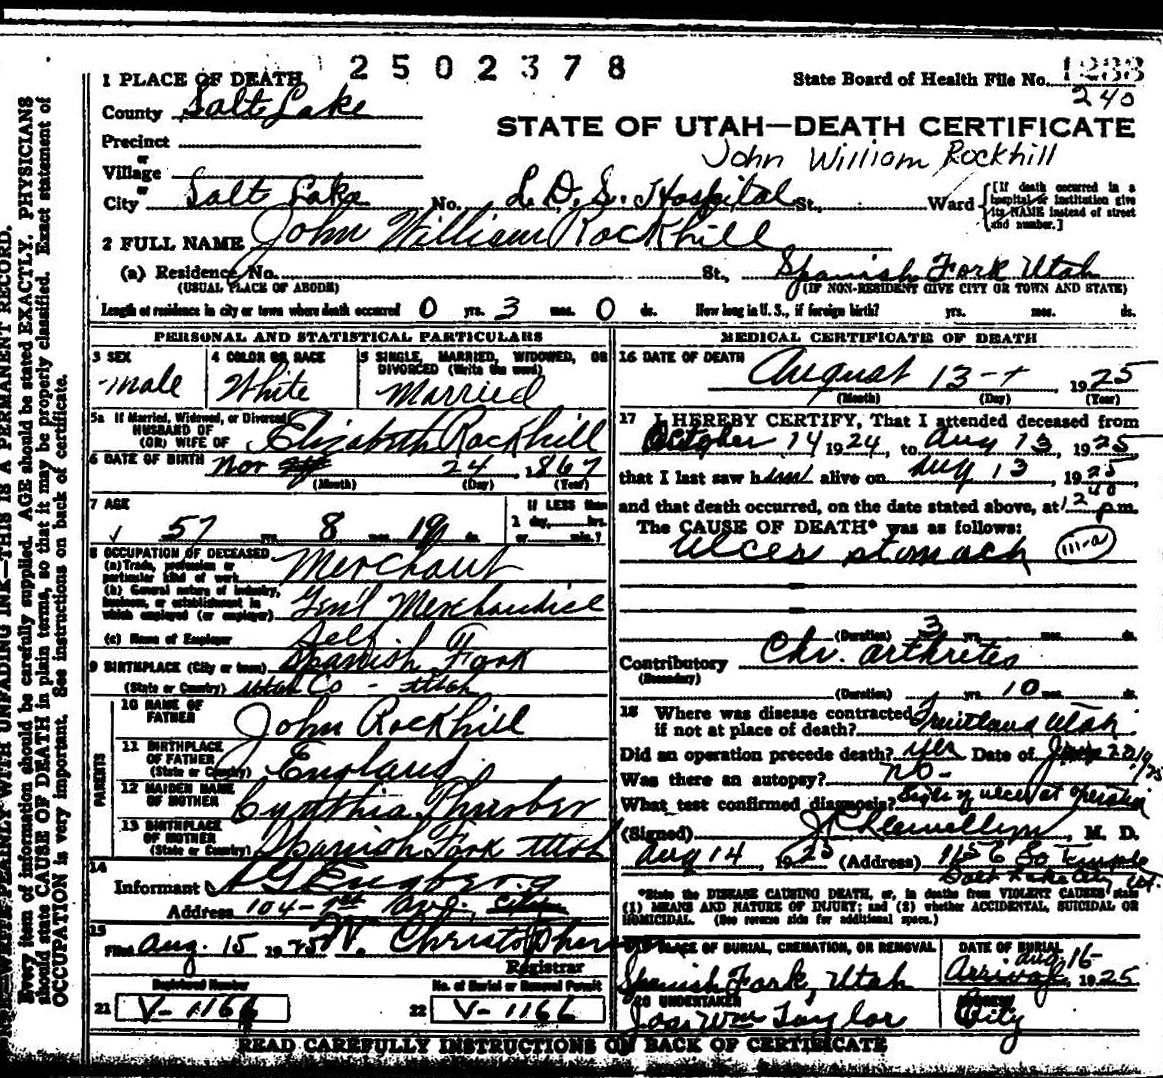 2502378
State Board of Health File No. 1233
240
1 PLACE OF DEATH
County Salt Lake
STATE OF UTAH—DEATH CERTIFICATE
Precinct
John William Rockhill
or
Village
or
City Salt Lake No. L. D. S. Hospital St., Ward [If death occurred in a hospital or institution give its NAME instead of street and number.]
2 FULL NAME John William Rockhill
(a) Residence, No. St., Spanish Fork Utah
(USUAL PLACE OF ABODE) (IF NON-RESIDENT GIVE CITY OR TOWN AND STATE)
Length of residence in city or town where death occurred 0 yrs. 3 mos. 0 ds. How long in U. S., if foreign birth? yrs. mos. ds.
PERSONAL AND STATISTICAL PARTICULARS
3 SEX
male
4 COLOR OR RACE
White
5 SINGLE, MARRIED, WIDOWED, OR DIVORCED (Write the word)
Married
5a If Married, Widowed, or Divorced
HUSBAND OF
(OR) WIFE OF Elizabeth Rockhill
6 DATE OF BIRTH Nov 24, 1867
(Month) (Day) (Year)
7 AGE
57 yrs. 8 mos. 19 ds.
If LESS than
1 day, hrs.
or min.?
8 OCCUPATION OF DECEASED
(a) Trade, profession or
particular kind of work Merchant
(b) General nature of industry,
business, or establishment in
which employed (or employer) Gen'l Merchandise
(c) Name of Employer Self
9 BIRTHPLACE (City or town) Spanish Fork
(State or Country) Utah Co - Utah
PARENTS
10 NAME OF
FATHER John Rockhill
11 BIRTHPLACE
OF FATHER
(State or Country) England
12 MAIDEN NAME
OF MOTHER Cynthia Thurber
13 BIRTHPLACE
OF MOTHER
(State or Country) Spanish Fork Utah
14
Informant
Address 104-1st Ave. City
15
Filed Aug. 15 1925 Christopherson
Registrar
Registered Number
21 V-1166
No. of Burial or Removal Permit
22 V-1166
MEDICAL CERTIFICATE OF DEATH
16 DATE OF DEATH
August 13, 1925
(Month) (Day) (Year)
17 I HEREBY CERTIFY, That I attended deceased from
October 14 1924, to Aug 13, 1925
that I last saw him alive on Aug 13, 1925,
and that death occurred, on the date stated above, at 12 40 p.m.
The CAUSE OF DEATH* was as follows:
Ulcer stomach 111-a
(Duration) 3 yrs. mos. ds.
Contributory Chr. arthrites
(Secondary)
(Duration) yrs. 10 mos. ds.
18 Where was disease contracted
if not at place of death? Fruitland Utah
Did an operation precede death? yes Date of
Was there an autopsy? no-
What test confirmed diagnosis?
(Signed) Llewellyn, M. D.
Aug 14, 1925 (Address) So Temple
Salt Lake City Ut.
*State the DISEASE CAUSING DEATH, or, in deaths from VIOLENT CAUSES, state
(1) MEANS AND NATURE OF INJURY; and (2) whether ACCIDENTAL, SUICIDAL OR
HOMICIDAL. (See reverse side for additional space.)
PLACE OF BURIAL, CREMATION, OR REMOVAL
Spanish Fork, Utah
DATE OF BURIAL
Aug 16- 1925
20 UNDERTAKER
Jos. Wm Taylor
City
READ CAREFULLY INSTRUCTIONS ON BACK OF CERTIFICATE
WRITE PLAINLY WITH UNFADING INK—THIS IS A PERMANENT RECORD.
Every item of information should be carefully supplied. AGE should be stated EXACTLY. PHYSICIANS
should state CAUSE OF DEATH in plain terms, so that it may be properly classified. Exact statement of
OCCUPATION is very important. See instructions on back of certificate.